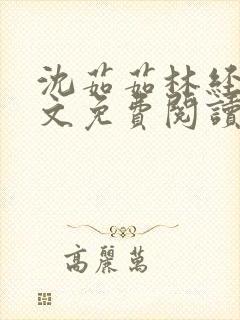 沈茹茹林经
文免費閱讀
高麗萬